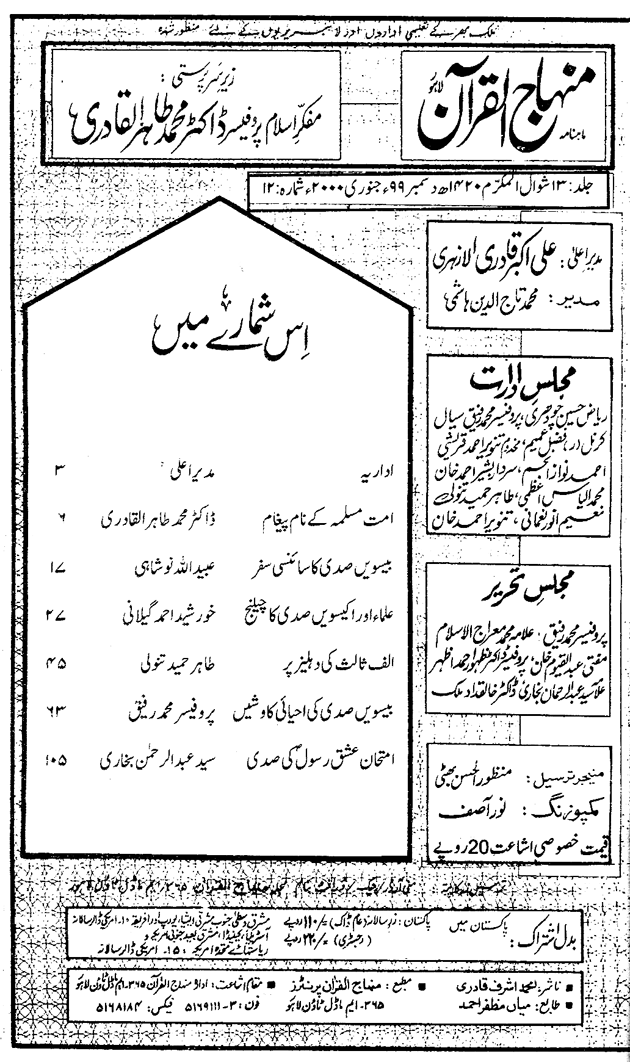 ملک بھر کے تعلیمی اداروں اور لائبریریوں کے لئے منظور شدہ
ماہنامہ منہاج القرآن لاہور
زیر سرپرستی :
مفکر اسلام پروفیسر ڈاکٹر محمد طاہر القادری
جلد: ۱۳ شوال المکرم ۱۴۲۰ھ دسمبر ۹۹ء جنوری ۲۰۰۰ء شمارہ: ۱۲
مدیر اعلیٰ : علی اکبر قادری الازہری
مدیر : محمد تاج الدین ہاشمی
مجلس ادارت
ریاض حسین چودھری، پروفیسر محمد رفیق سیال
کرنل (ر) فضل عمیم، مخدوم تنویر احمد قریشی
احمد نواز انجم، سردار بشیر احمد خان
محمد الیاس اعظمی، طاہر حمید تنولی
نعیم انور نعمانی، تنویر احمد خان
مجلس تحریر
پروفیسر محمد رفیق، علامہ محمد معراج الاسلام
مفتی عبدالقیوم خان، پروفیسر ڈاکٹر ظہور احمد اظہر
علامہ سید عبدالرحمان بخاری، ڈاکٹر خالقداد ملک
منیجر ترسیل : منظور الحسن بھٹی
کمپوزنگ : نور آصف
قیمت خصوصی اشاعت 20 روپے
اس شمارے میں
اداریہ مدیر اعلی ۳
امت مسلمہ کے نام پیغام ڈاکٹر محمد طاہر القادری ۶
بیسویں صدی کا سائنسی سفر عبید اللہ نوشاہی ۱۷
علماء اور اکیسویں صدی کا چیلنج خورشید احمد گیلانی ۲۷
الف ثالث کی دہلیز پر طاہر حمید تنولی ۴۵
بیسویں صدی کی احیائی کاوشیں پروفیسر محمد رفیق ۶۳
امتحان عشق رسولؐ کی صدی سید عبدالرحمٰن بخاری ۱۰۵
مجلہ منہاج القرآن ۳۶۵ ایم ماڈل ٹاؤن لاہور
بدل اشتراک : پاکستان میں
پاکستان: زر سالانہ (عام ڈاک) ۱۱۰/= روپے
(رجسٹری) ۲۲۰/= روپے
مشرق وسطیٰ جنوب مشرقی ایشیا، یورپ اور افریقہ ۱۰۔ امریکی ڈالر سالانہ
ریاستہائے متحدہ امریکہ ، ۱۵۔ امریکی ڈالر سالانہ
■ ناشر: محمد اشرف قادری ■ مطبع : منہاج القرآن پرنٹرز ■ مقام اشاعت : ادارہ منہاج القرآن ۳۶۵۔ ایم ماڈل ٹاؤن لاہور
■ طابع: میاں مظفر احمد ۳۶۵۔ ایم ماڈل ٹاؤن لاہور فون: ۳-۵۱۶۹۱۱۱ فیکس: ۵۱۶۸۱۸۴